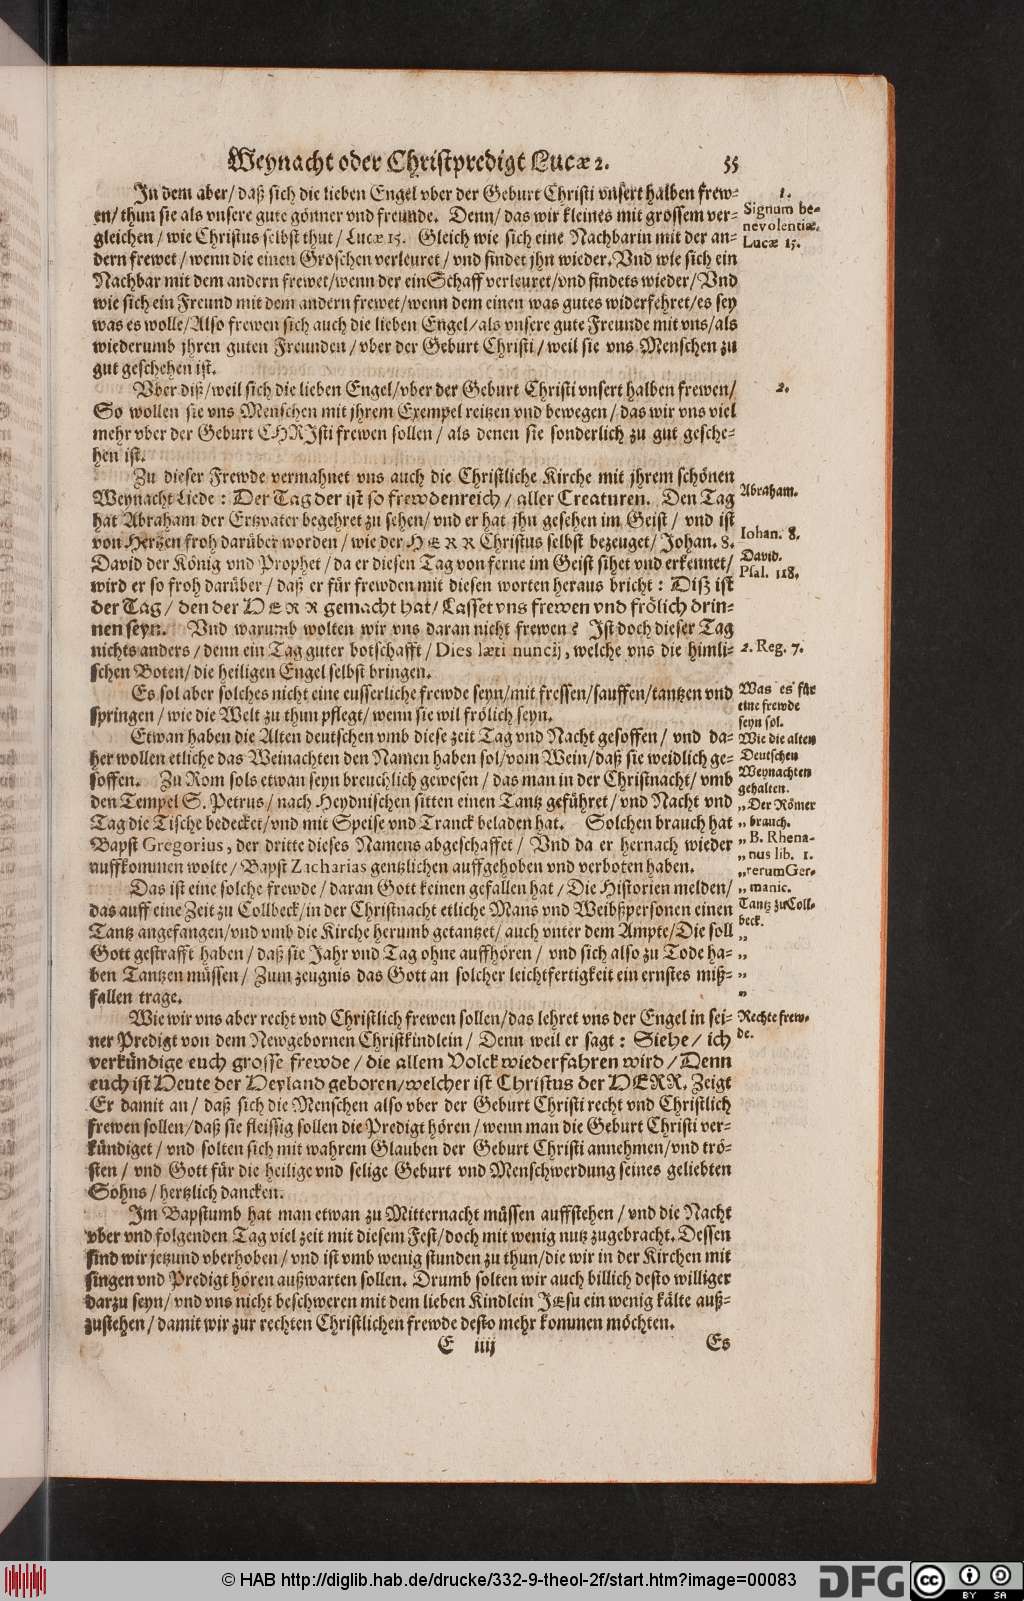 Weynacht oder Christpredigt Lucæ 2. 55
In dem aber/ daß sich die lieben Engel vber der Geburt Christi vnsert halben frew-
en/ thun sie als vnsere gute gönner vnd freunde. Denn/ das wir kleines mit grossem ver-
gleichen / wie Christus selbst thut / Lucæ 15. Gleich wie sich eine Nachbarin mit der an-
dern frewet / wenn die einen Groschen verleuret / vnd findet jhn wieder. Vnd wie sich ein
Nachbar mit dem andern frewet/wenn der ein Schaff verleuret/vnd findets wieder/ Vnd
wie sich ein Freund mit dem andern frewet/wenn dem einen was gutes widerfehret/es sey
was es wolle/Also frewen sich auch die lieben Engel/als vnsere gute Freunde mit vns/als
wiederumb jhren guten Freunden / vber der Geburt Christi / weil sie vns Menschen zu
gut geschehen ist.
Vber diß/weil sich die lieben Engel/vber der Geburt Christi vnsert halben frewen/
So wollen sie vns Menschen mit jhrem Exempel reitzen vnd bewegen / das wir vns viel
mehr vber der Geburt CHRJsti frewen sollen / als denen sie sonderlich zu gut gesche-
hen ist.
Zu dieser Frewde vermahnet vns auch die Christliche Kirche mit jhrem schönen
Weynacht Liede : Der Tag der ist so frewdenreich / aller Creaturen. Den Tag
hat Abraham der Ertzvater begehret zu sehen/ vnd er hat jhn gesehen im Geist / vnd ist
von Hertzen froh darüber worden / wie der HERR Christus selbst bezeuget/ Johan. 8.
David der König vnd Prophet / da er diesen Tag von ferne im Geist sihet vnd erkennet/
wird er so froh darüber / daß er für frewden mit diesen worten heraus bricht : Diß ist
der Tag / den der HERR gemacht hat/ Lasset vns frewen vnd frölich drin-
nen seyn. Vnd warumb wolten wir vns daran nicht frewen? Ist doch dieser Tag
nichts anders / denn ein Tag guter botschafft / Dies læti nuncij, welche vns die himli-
schen Boten/ die heiligen Engel selbst bringen.
Es sol aber solches nicht eine eusserliche frewde seyn/mit fressen/sauffen/tantzen vnd
springen / wie die Welt zu thun pflegt/ wenn sie wil frölich seyn.
Etwan haben die Alten deutschen vmb diese zeit Tag vnd Nacht gesoffen / vnd da-
her wollen etliche das Weinachten den Namen haben sol/vom Wein/daß sie weidlich ge-
soffen. Zu Rom sols etwan seyn breuchlich gewesen / das man in der Christnacht/ vmb
den Tempel S. Petrus / nach Heydnischen sitten einen Tantz geführet / vnd Nacht vnd
Tag die Tische bedecket/vnd mit Speise vnd Tranck beladen hat. Solchen brauch hat
Bapst Gregorius, der dritte dieses Namens abgeschaffet / Vnd da er hernach wieder
auffkommen wolte / Bapst Zacharias gentzlichen auffgehoben vnd verboten haben.
Das ist eine solche frewde / daran Gott keinen gefallen hat / Die Historien melden/
das auff eine Zeit zu Collbeck/in der Christnacht etliche Mans vnd Weibßpersonen einen
Tantz angefangen/vnd vmb die Kirche herumb getantzet/ auch vnter dem Ampte/Die soll
Gott gestrafft haben / daß sie Jahr vnd Tag ohne auffhören / vnd sich also zu Tode ha-
ben Tantzen müssen / Zum zeugnis das Gott an solcher leichtfertigkeit ein ernstes miß-
fallen trage.
Wie wir vns aber recht vnd Christlich frewen sollen/das lehret vns der Engel in sei-
ner Predigt von dem Newgebornen Christkindlein / Denn weil er sagt : Siehe / ich
verkündige euch grosse frewde / die allem Volck wiederfahren wird / Denn
euch ist Heute der Heyland geboren/welcher ist Christus der HERR. Zeigt
Er damit an / daß sich die Menschen also vber der Geburt Christi recht vnd Christlich
frewen sollen/daß sie fleissig sollen die Predigt hören / wenn man die Geburt Christi ver-
kündiget / vnd solten sich mit wahrem Glauben der Geburt Christi annehmen/vnd trö-
sten / vnd Gott für die heilige vnd selige Geburt vnd Menschwerdung seines geliebten
Sohns / hertzlich dancken.
Im Bapstumb hat man etwan zu Mitternacht müssen auffstehen / vnd die Nacht
vber vnd folgenden Tag viel zeit mit diesem Fest/doch mit wenig nutz zugebracht. Dessen
sind wir jetzund vberhoben / vnd ist vmb wenig stunden zu thun/die wir in der Kirchen mit
singen vnd Predigt hören außwarten sollen. Drumb solten wir auch billich desto williger
darzu seyn/ vnd vns nicht beschweren mit dem lieben Kindlein JEsu ein wenig kälte auß-
zustehen / damit wir zur rechten Christlichen frewde desto mehr kommen möchten.
E iiij Es
1.
Signum be-
nevolentiæ.
Lucæ 15.
2.
Abraham.
Iohan. 8.
David.
Psal. 118.
2. Reg. 7.
Was es für
eine frewde
seyn sol.
Wie die alten
Deutschen
Weynachten
gehalten.
„ Der Römer
„ brauch.
„ B. Rhena-
„ nus lib. 1.
„ rerum Ger-
„ manic.
Tantz zu Coll-
beck.
„
„
„
„
Rechte frew-
de.
© HAB http://diglib.hab.de/drucke/332-9-theol-2f/start.htm?image=00083
DFG
cc BY SA